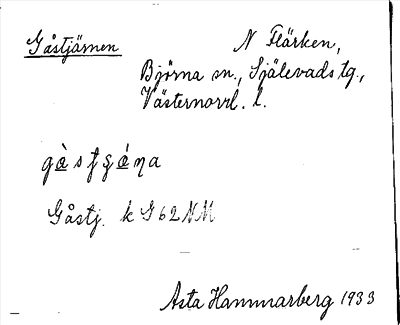 Gåstjärnen
N Flärken,
Björna sn., Själevads tg.,
Västernorrl. l.
Gåstj. k S 62 NM
Asta Hammarberg 1933